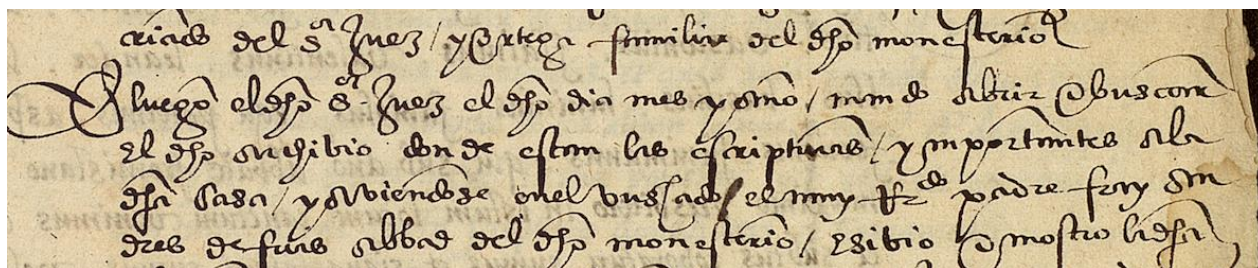 criado del Sor Juez / y Ortega familiar del dho monesterio
E luego el dho Sor Juez el dho dia mes y año / mando abrir e buscar
el dho archibio donde estan las escripturas / ymportantes a la
dha casa / y aviendose en el buscado / el muy Rdo padre fray An
dres de frias abbad del dho monesterio / esibio e mostro la dha